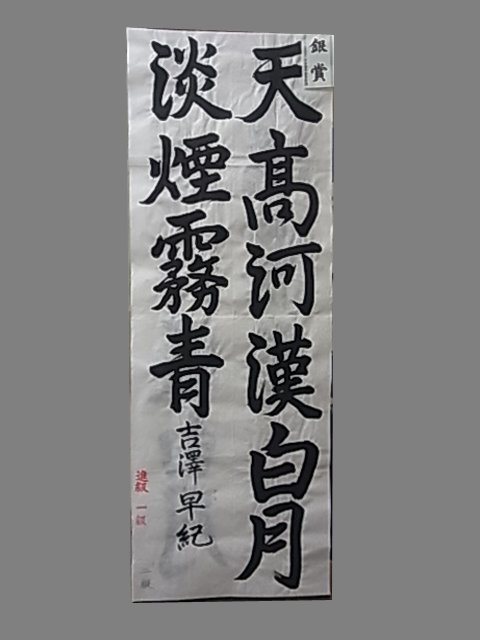 銀賞
天高河漢白月
淡煙霧青
吉澤早紀
進級 一級
二級